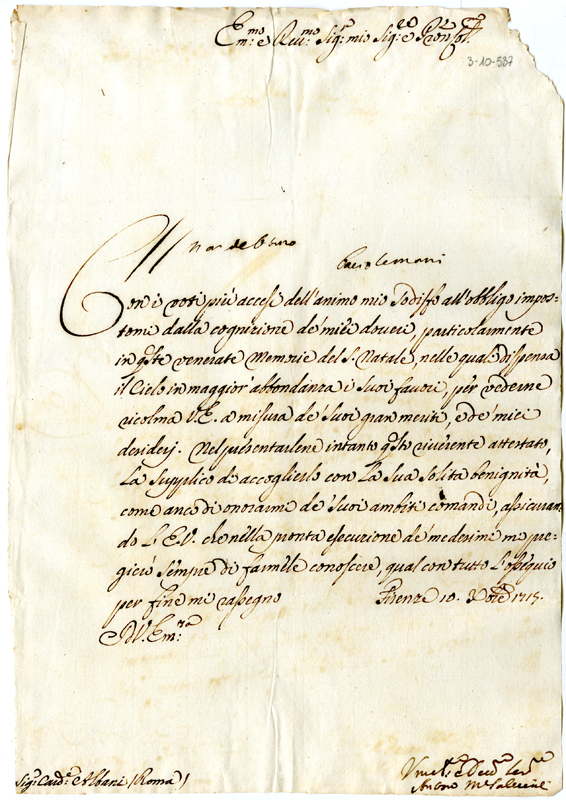 Em:mo e Rev:mo Sig:r mio Sig:re e Pron Col:mo
3-10-587
Con i voti più accesi dell'animo mio sodisfo all'obbligo impos-
tomi dalla cognizione de' miei doveri, particolarmente
in q̃ste venerate Memorie del S. Natale, nelle quali dispensa
il Cielo in maggior' abbondanza i Suoi favori, per vederne
ricolma V.E. a misura de' Suoi gran meriti, e de' miei
desiderj. Nel presentarlene intanto q̃sto riverente attestato,
La Supplico di accoglierlo con La Sua solita benignità,
come anco di onorarmi de' Suoi ambiti comandi, assicuran-
do L'E.V. che nella pronta esecuzione de' medesimi mi pre-
gierò sempre di farmele conoscere, qual con tutto L'ossequio
per fine mi rassegno Firenze 10. Xbre 1715.
D V. Em:za
Sig:r Card:e Albani (Roma)
Antonio M:a Salviati